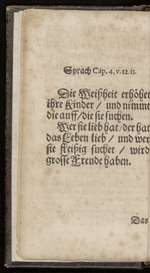 Syrach Cap. 4. v. 12. 13.
Die Weißheit erhöhet
ihre Kinder / und nimmt
die auff / die sie suchen.
Wer sie lieb hat / der hat
das Leben lieb / und wer
sie fleißig suchet / wird
grosse Freude haben.
Das